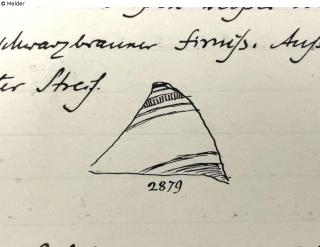 © Melder
schwarzbrauner Firniß. Auß
ter Streif.
2879